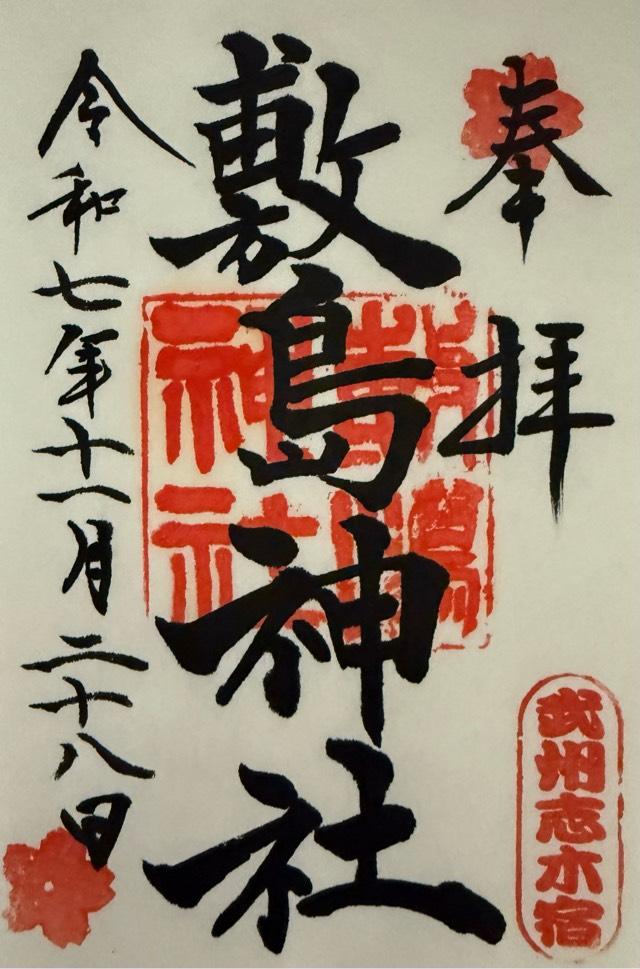 奉拝
敷島神社
令和七年十一月二十八日
武州志木宿